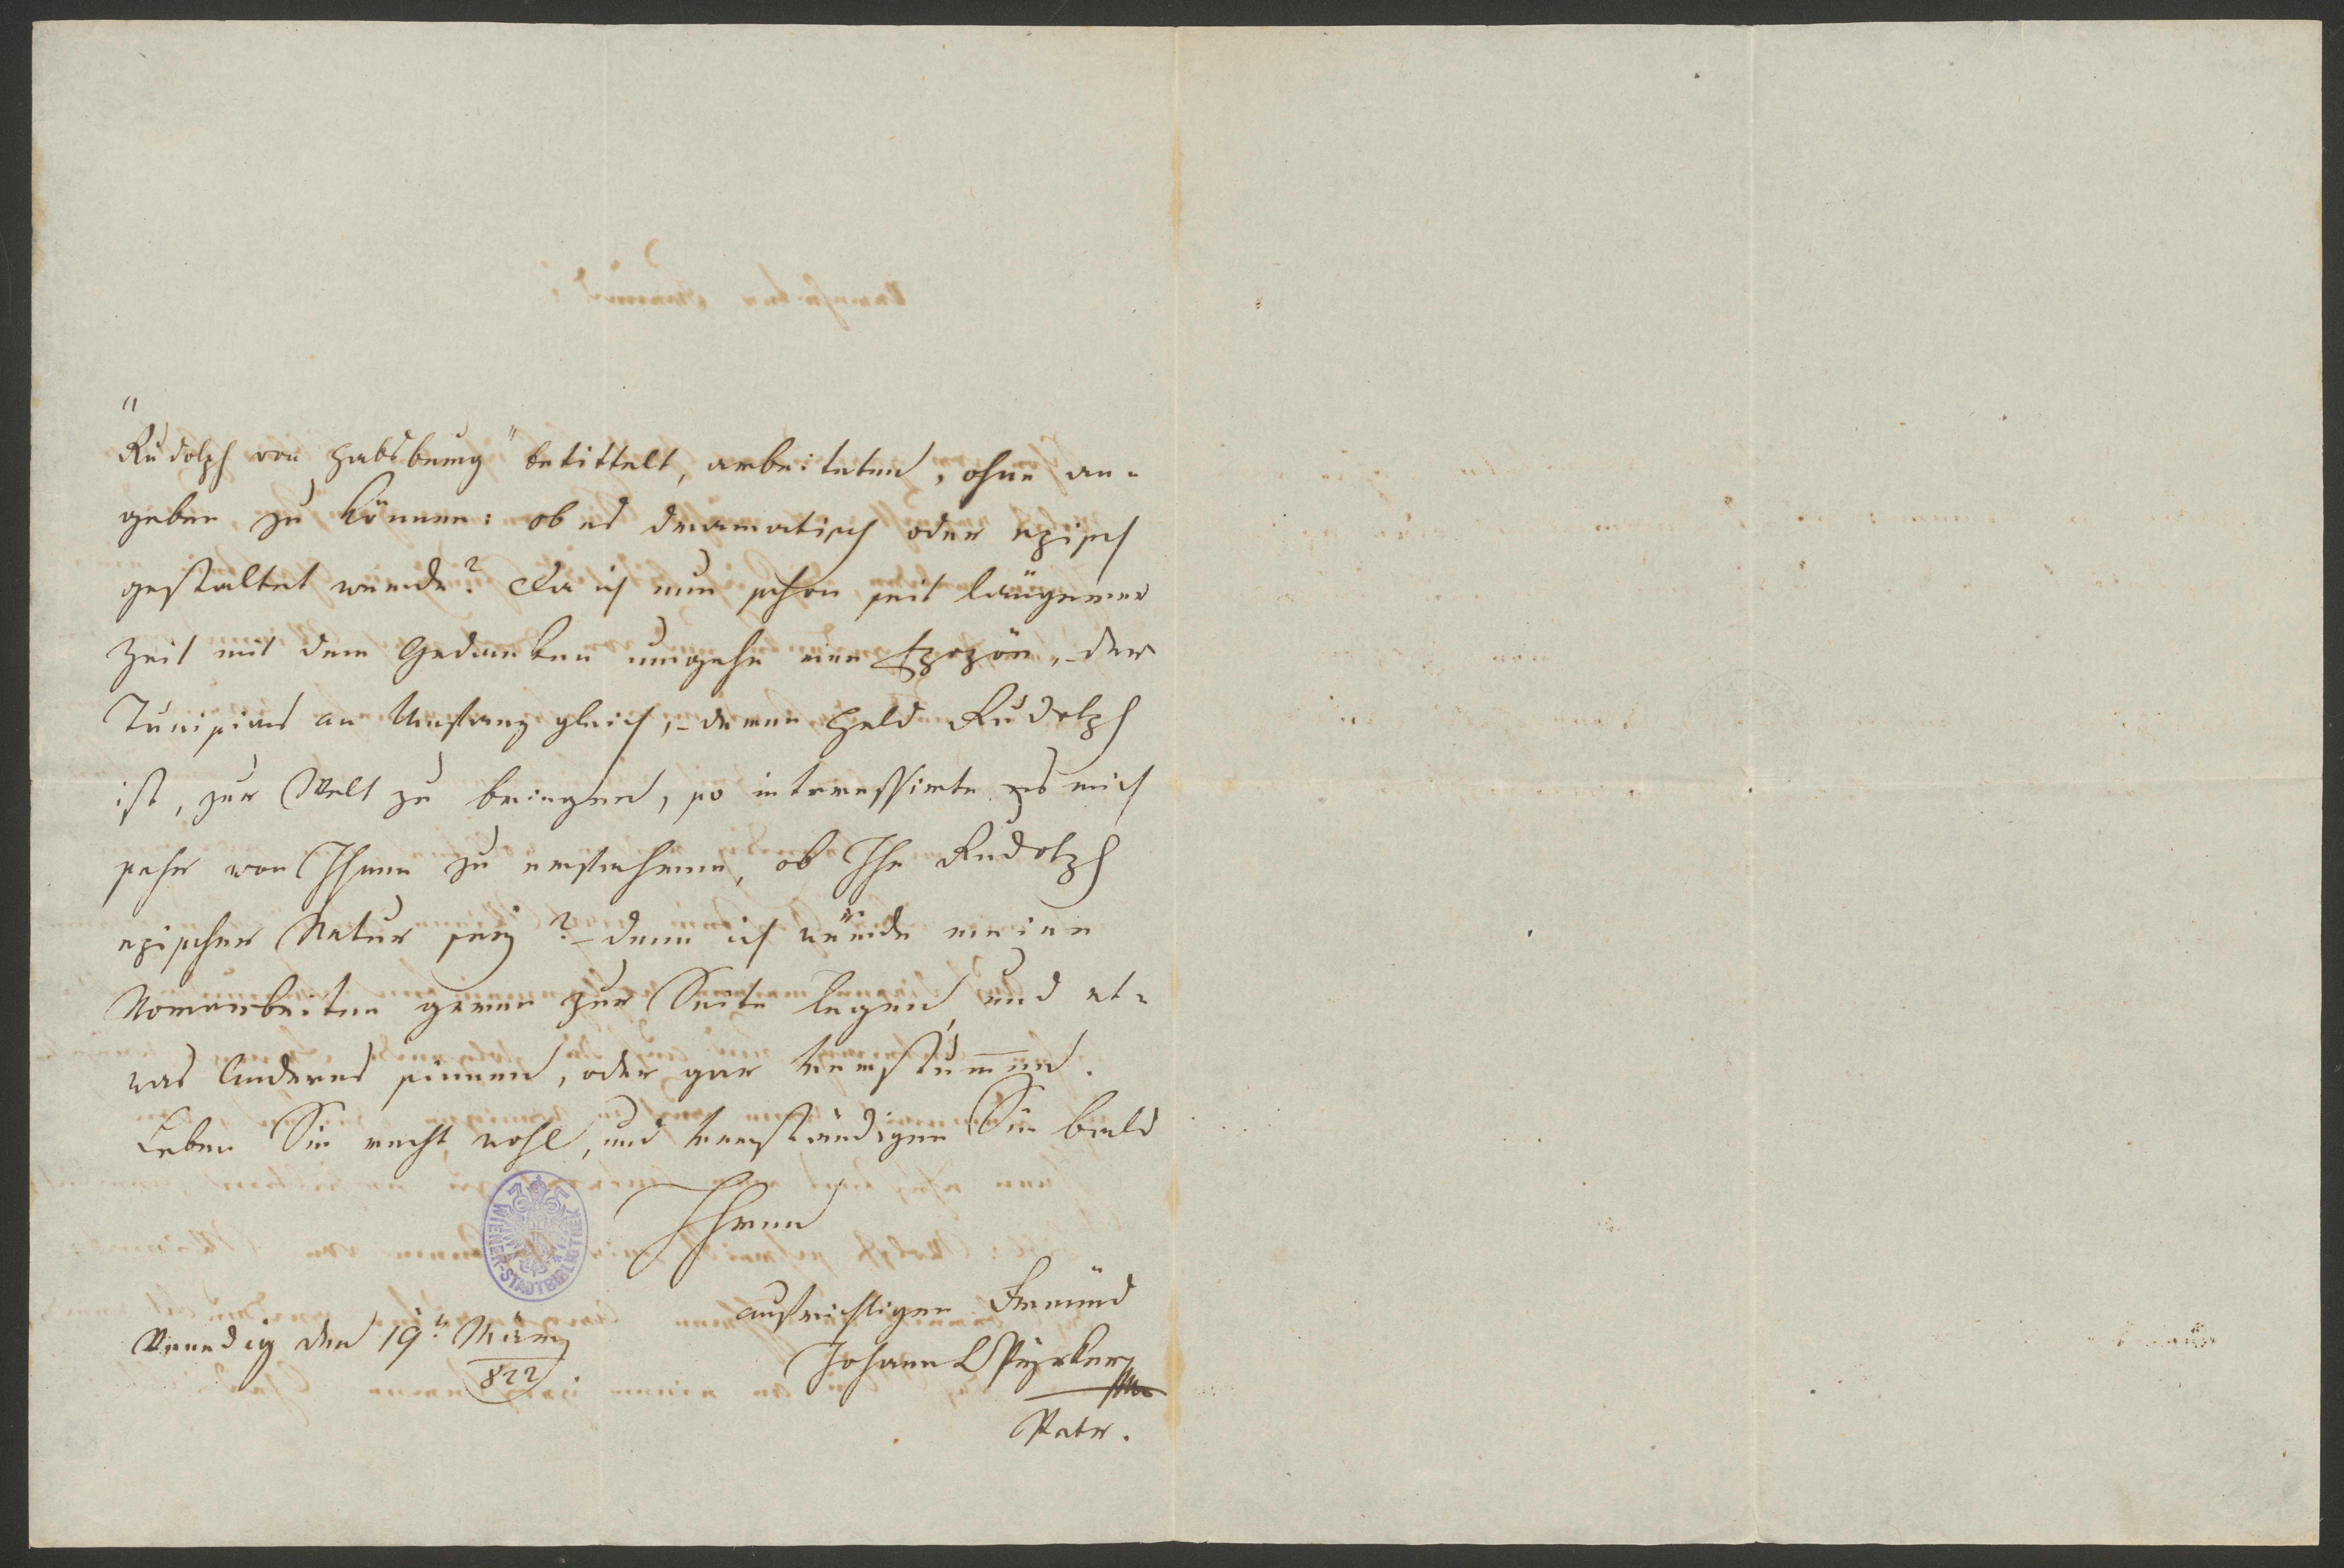 "Rudolph von Habsburg" betittelt, arbeiteten, ohne an-
geben zu können: ob es dramatisch oder episch
gestaltet würde? Da ich nun schon seit längerer
Zeit mit dem Gedanken umgehe eine Epopöe, – der
Tunisias an Umfang gleich, – deren Held Rudolph
ist, zur Welt zu bringen, so interessirte es mich
sehr von Ihnen zu erfahren, ob Ihr Rudolph
epischer Natur sey? – denn ich würde meine
Vorarbeiten gerne zur Seite legen, und et-
was Anderes sinnen, oder gar verstummen.
Leben Sie recht wohl, und verständigen Sie bald
Ihren
aufrichtigen Freund
Johann L Pyrker
Patr.
Venedig den 19t. März
822
WIENER-STADTBIBLIOTHEK